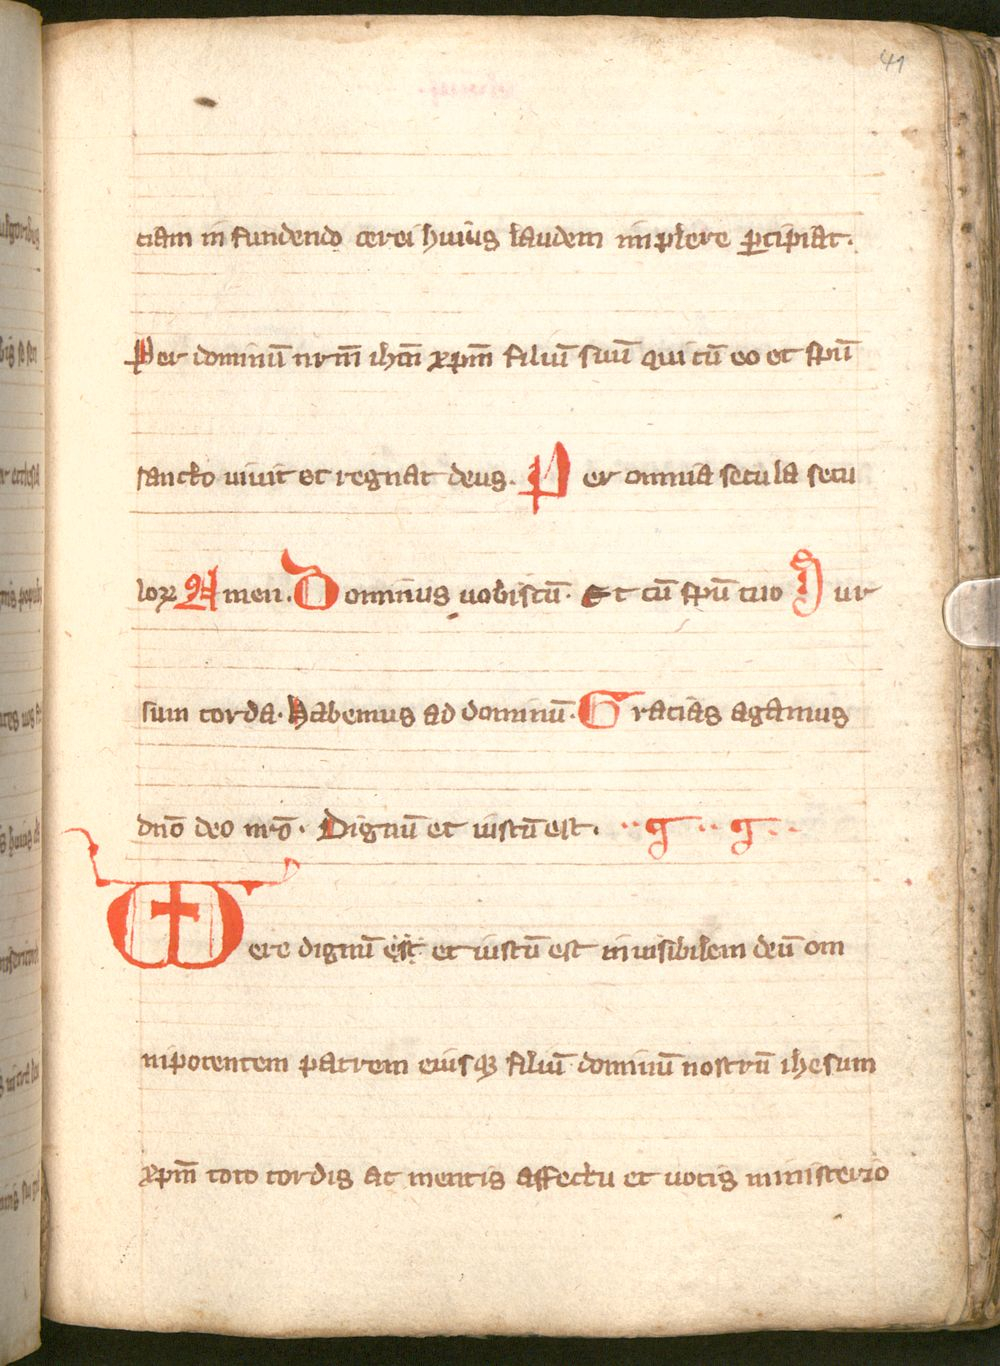 41
ciam in fundendo cerei huius laudem implere p̱cipiat.
Per dominū nrm̄ ihm̄ xp̄m filiū suū qui cū eo et sp̄ū
sancto uiuit et regnat deus. Per omnia secula secu
loꝝ Amen. Dominus uobiscū. Et cū sp̄ū tuo Sur
sum corda. Habemus ad dominū. Gracias agamus
dn̄o deo nr̄o. Dignū et iustū est.
Vere dignū est et iustū est inuisibilem deū om
nipotentem patrem eiusqꝫ filiū dominū nostrū ihesum
xp̄m toto cordis ac mentis affectu et uocis ministerio